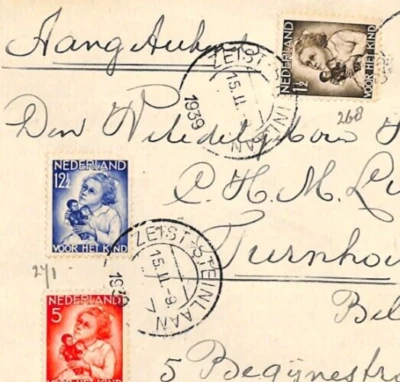 Aangetekend
NEDERLAND
1½
VOOR HET KIND
ZEIST-STEINLAAN
15.II
1939
268
Den
NEDERLAND
12½
VOOR HET KIND
C. H. M.
ZEIST-STEINLAAN
15.II-8
7
193
Turnhou
271
NEDERLAND
5
Bel
5 Begijnestra